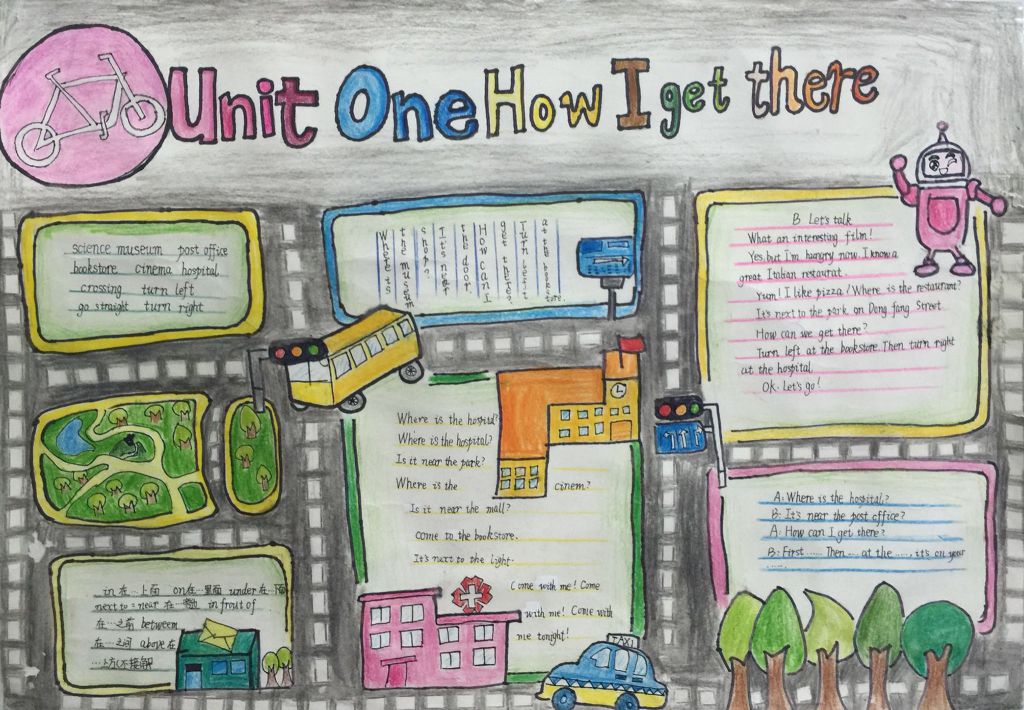 Unit One How I get there
science museum post office
bookstore cinema hospital
crossing turn left
go straight turn right
Where is
the museum
shop?
It's near
the door.
How can I
get there?
Turn left
at the bookstore.
B Let's talk
What an interesting film!
Yes, but I'm hungry now. I know a
great Italian restaurat.
Yum! I like pizza! Where is the restaurant?
It's next to the park on Dong fang Street
How can we get there?
Turn left at the bookstore. Then turn right
at the hospital.
Ok. Let's go!
Where is the hospital?
Where is the hospital?
Is it near the park?
Where is the cinem?
Is it near the mall?
come to the bookstore.
It's next to the light.
Come with me! Come
with me! Come with
me tonight!
TAXI
A: Where is the hospital?
B: It's near the post office?
A: How can I get there?
B: First ...... Then ... at the ......, it's on your
......
in 在…上面 on在…里面 under在…下面
next to = near 在… in front of
在…之前 betweem
在…之间 above 在